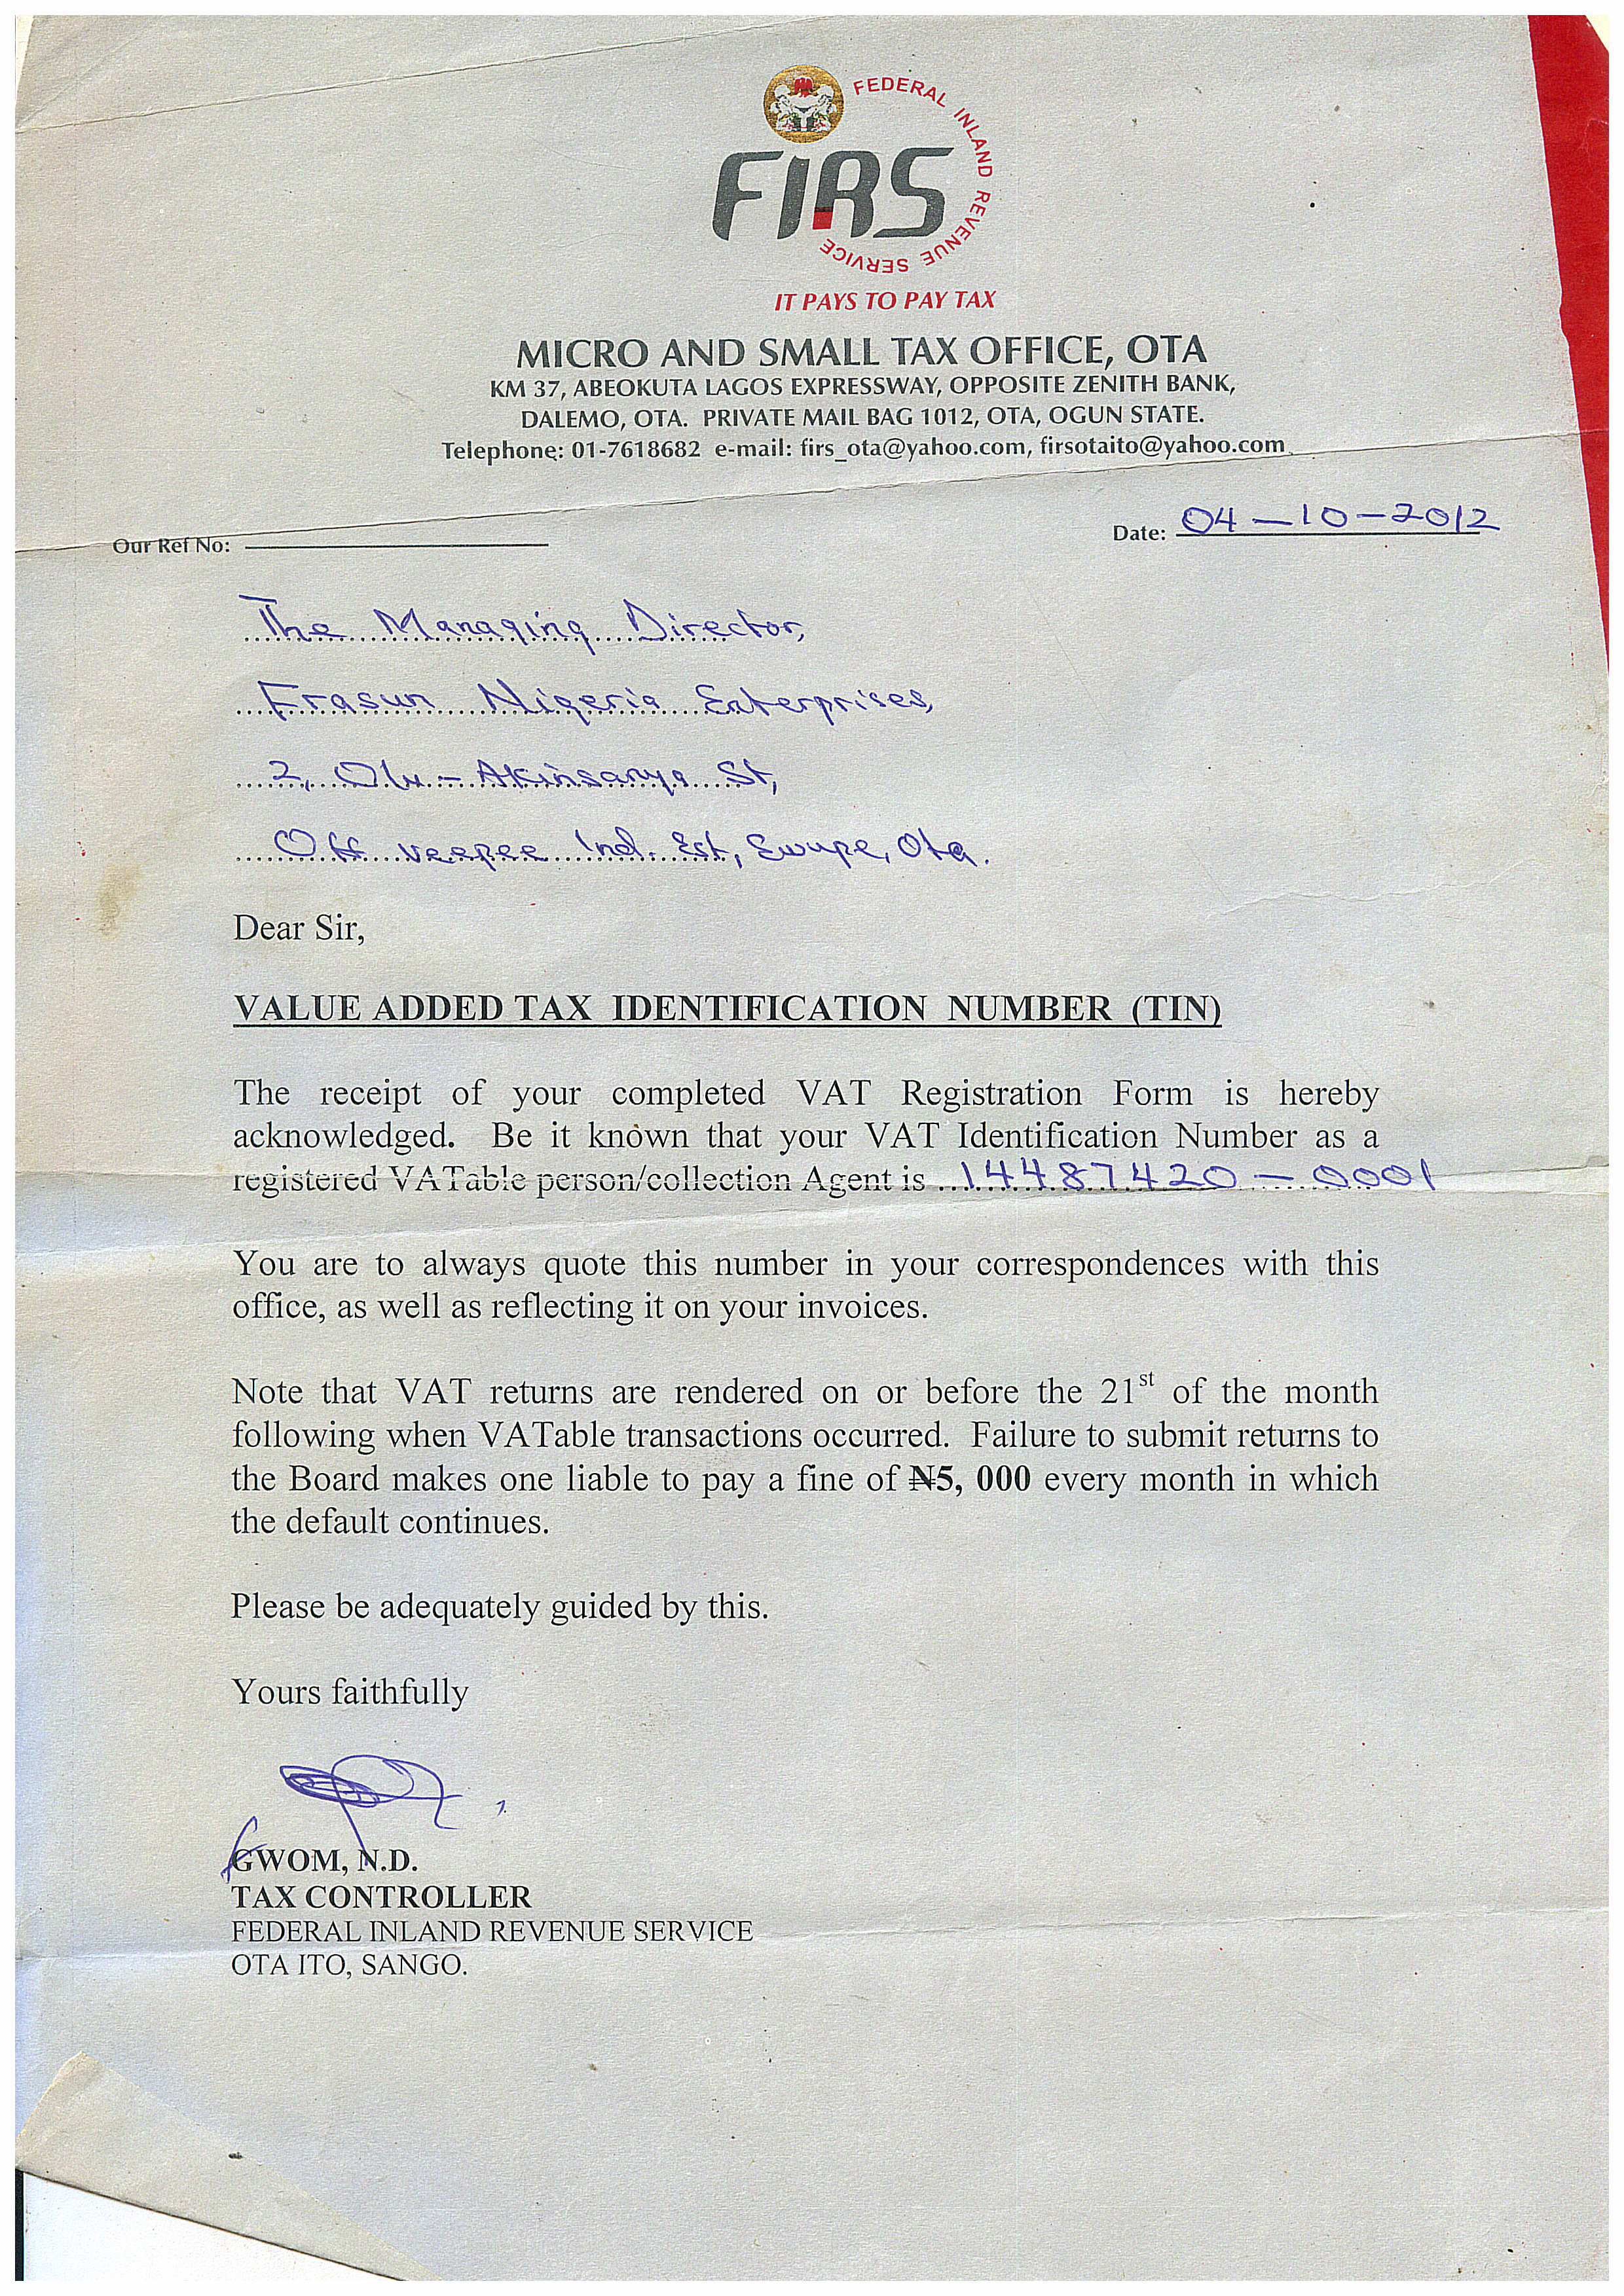 FEDERAL INLAND REVENUE SERVICE
FIRS
IT PAYS TO PAY TAX
MICRO AND SMALL TAX OFFICE, OTA
KM 37, ABEOKUTA LAGOS EXPRESSWAY, OPPOSITE ZENITH BANK,
DALEMO, OTA. PRIVATE MAIL BAG 1012, OTA, OGUN STATE.
Telephone: 01-7618682 e-mail: firs_ota@yahoo.com, firsotaito@yahoo.com
Our Ref No:
Date: 04-10-2012
The Managing Director,
Frasun Nigeria Enterprises,
2, Olu-Akinsanya St,
Off veepee Ind. Est, Ewupe, Ota.
Dear Sir,
VALUE ADDED TAX IDENTIFICATION NUMBER (TIN)
The receipt of your completed VAT Registration Form is hereby
acknowledged. Be it known that your VAT Identification Number as a
registered VATable person/collection Agent is 14487420-0001
You are to always quote this number in your correspondences with this
office, as well as reflecting it on your invoices.
Note that VAT returns are rendered on or before the 21st of the month
following when VATable transactions occurred. Failure to submit returns to
the Board makes one liable to pay a fine of ₦5, 000 every month in which
the default continues.
Please be adequately guided by this.
Yours faithfully
GWOM, N.D.
TAX CONTROLLER
FEDERAL INLAND REVENUE SERVICE
OTA ITO, SANGO.